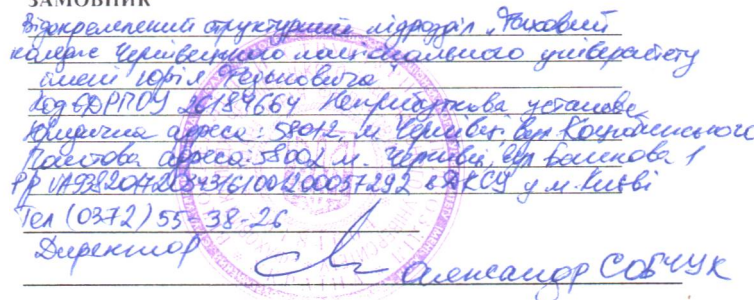 ЗАМОВНИК
Відокремлений структурний підрозділ "Фаховий
коледж Чернівецького національного університету
імені Юрія Федьковича
код ЄДРПОУ 26187664 Неприбуткова установа
Юридична адреса: 58012, м. Чернівці, вул. Коцюбинського
Поштова адреса: 58002 м. Чернівці, вул Банкова 1
Р/р в ДКСУ у м. Києві
Тел (0372) 55-38-26
Директор
Олександр СОБЧУК